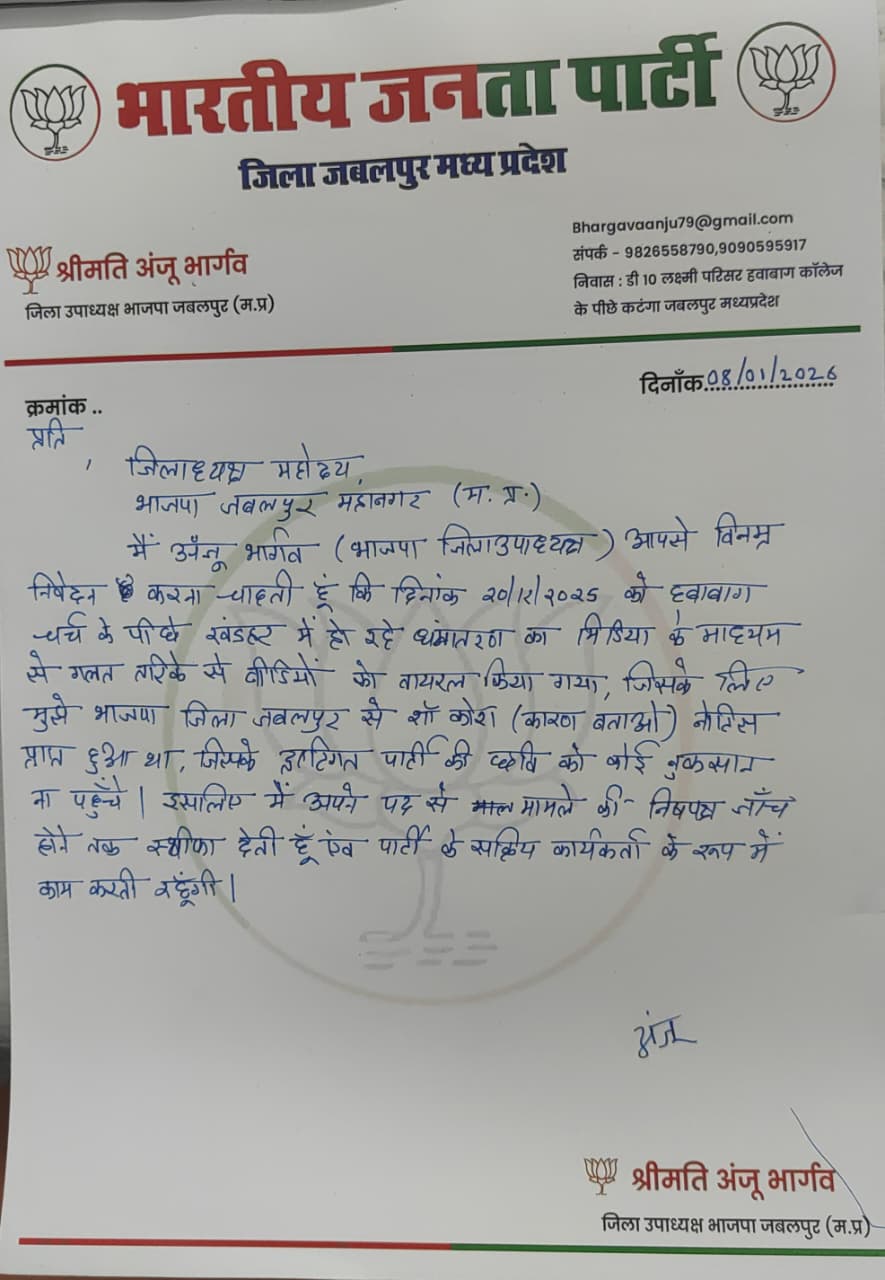 भारतीय जनता पार्टी
जिला जबलपुर मध्य प्रदेश
श्रीमति अंजू भार्गव
जिला उपाध्यक्ष भाजपा जबलपुर (म.प्र)
Bhargavaanju79@gmail.com
संपर्क - 9826558790,9090595917
निवास : डी 10 लक्ष्मी परिसर हवाबाग कॉलेज
के पीछे कटंगा जबलपुर मध्यप्रदेश
दिनाँक 08/01/2026
क्रमांक ..
प्रति,
जिलाध्यक्ष महोदय,
भाजपा जबलपुर महानगर (म. प्र.)
मैं अंजू भार्गव (भाजपा जिलाउपाध्यक्ष) आपसे विनम्र
निवेदन करना चाहती हूं कि दिनांक 20/12/2025 को हवाबाग
चर्च के पीछे खंडहर में हो रहे धर्मातरण का मिडिया के माध्यम
से गलत तरिके से वीडियों को वायरल किया गया, जिसके लिए
मुझे भाजपा जिला जबलपुर से शॉ कोश (कारण बताओ) नोटिस
प्राप्त हुआ था, जिसके दृष्टिगत पार्टी की छवि को कोई नुकसान
ना पहुँचे | इसलिए में अपने पद से मामले की निषपक्ष जाँच
होने तक स्थीफा देती हूं एंव पार्टी के सक्रिय कार्यकर्ता के रूप में
काम करती रहूंगी |
अंजू
श्रीमति अंजू भार्गव
जिला उपाध्यक्ष भाजपा जबलपुर (म.प्र)